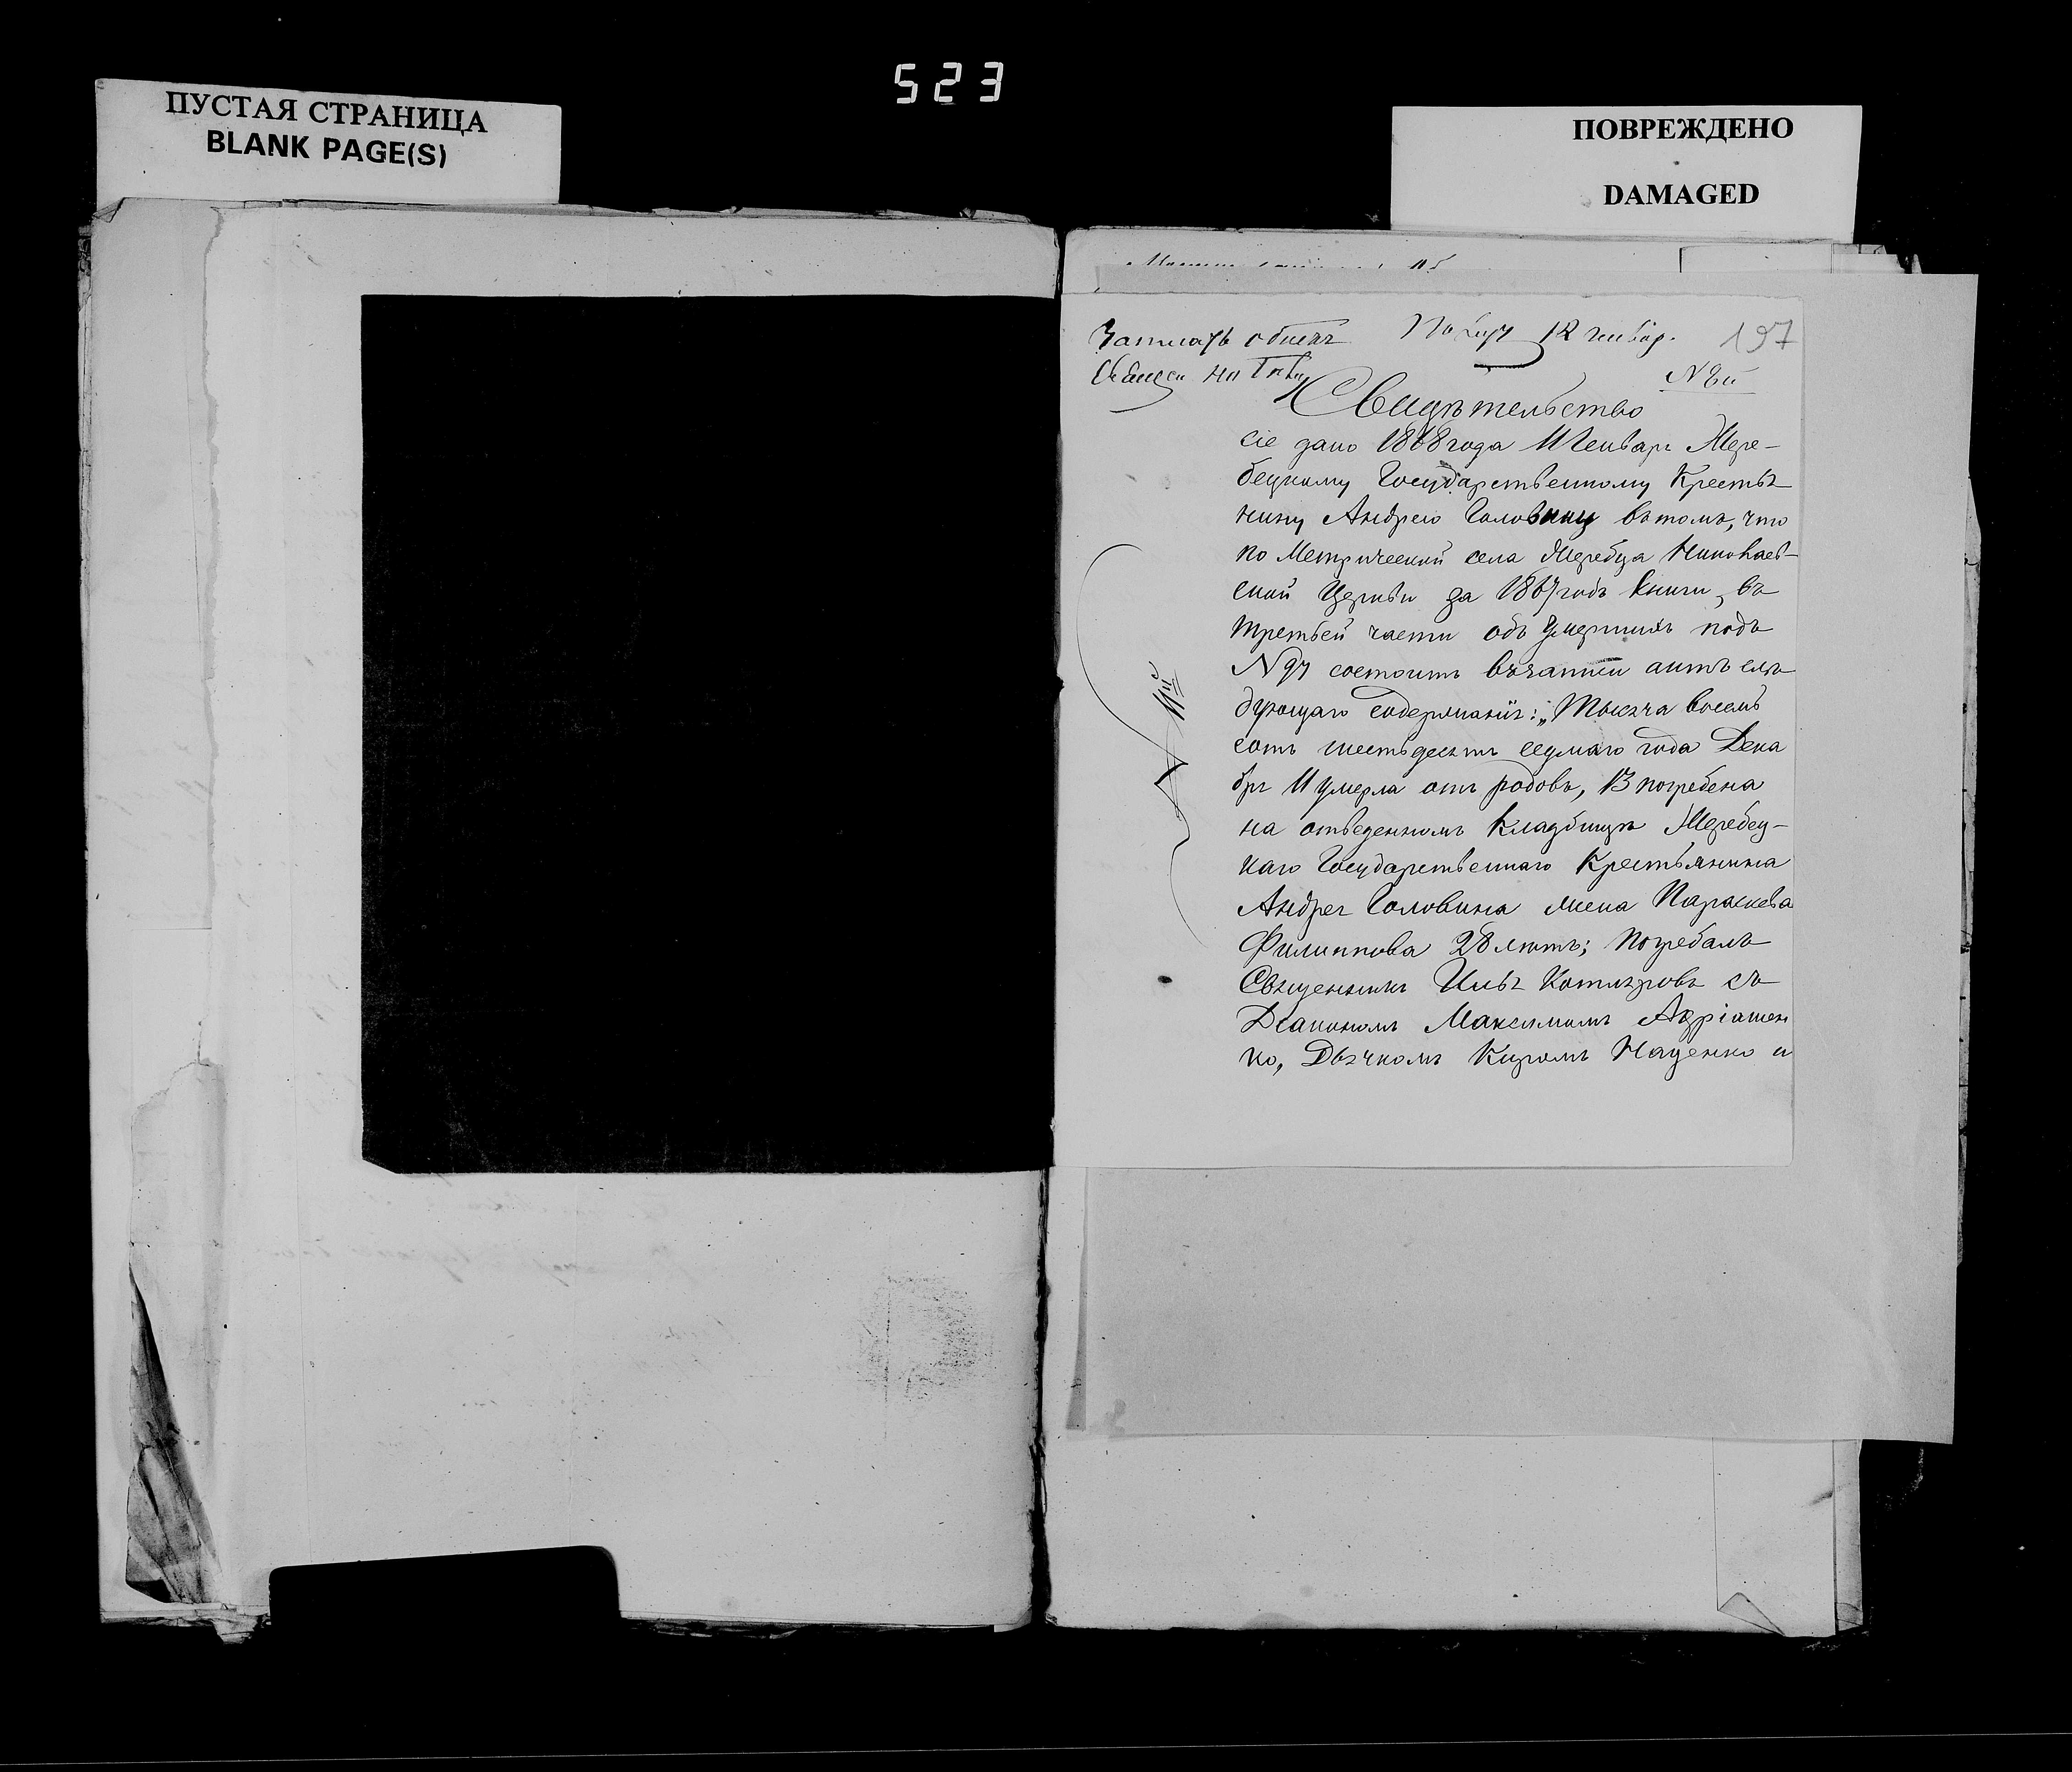 523
ПУСТАЯ СТРАНИЦА
BLANK PAGE(S)
ПОВРЕЖДЕНО
DAMAGED
12 генвар.
197
Свидѣтельство
сіе дано 1868 года 11 Генваря Жере-
бецкому Государственному Крестья
нину Андрею Головину въ томъ, что
по Метрической села Жеребца Николаев-
ской Церкви за 1867 годъ книги, въ
третьей части объ умершихъ подъ
N 97 состоитъ въ запис актъ слѣ
дующаго содержанія: „Тысяча восемь
сотъ шестьдесятъ седмаго года Дека
бря 11 умерла отъ родовъ, 13 погребена
на отведенномъ Кладбищѣ Жеребец-
каго Государственнаго Крестьянина
Андрея Головина жена Параскева
Филиппова 28 лѣтъ; погребалъ
Священникъ Илья Котляровъ съ
Діакономъ Максимомъ Андріашен
ко, Дьячкомъ Киромъ Наценко и